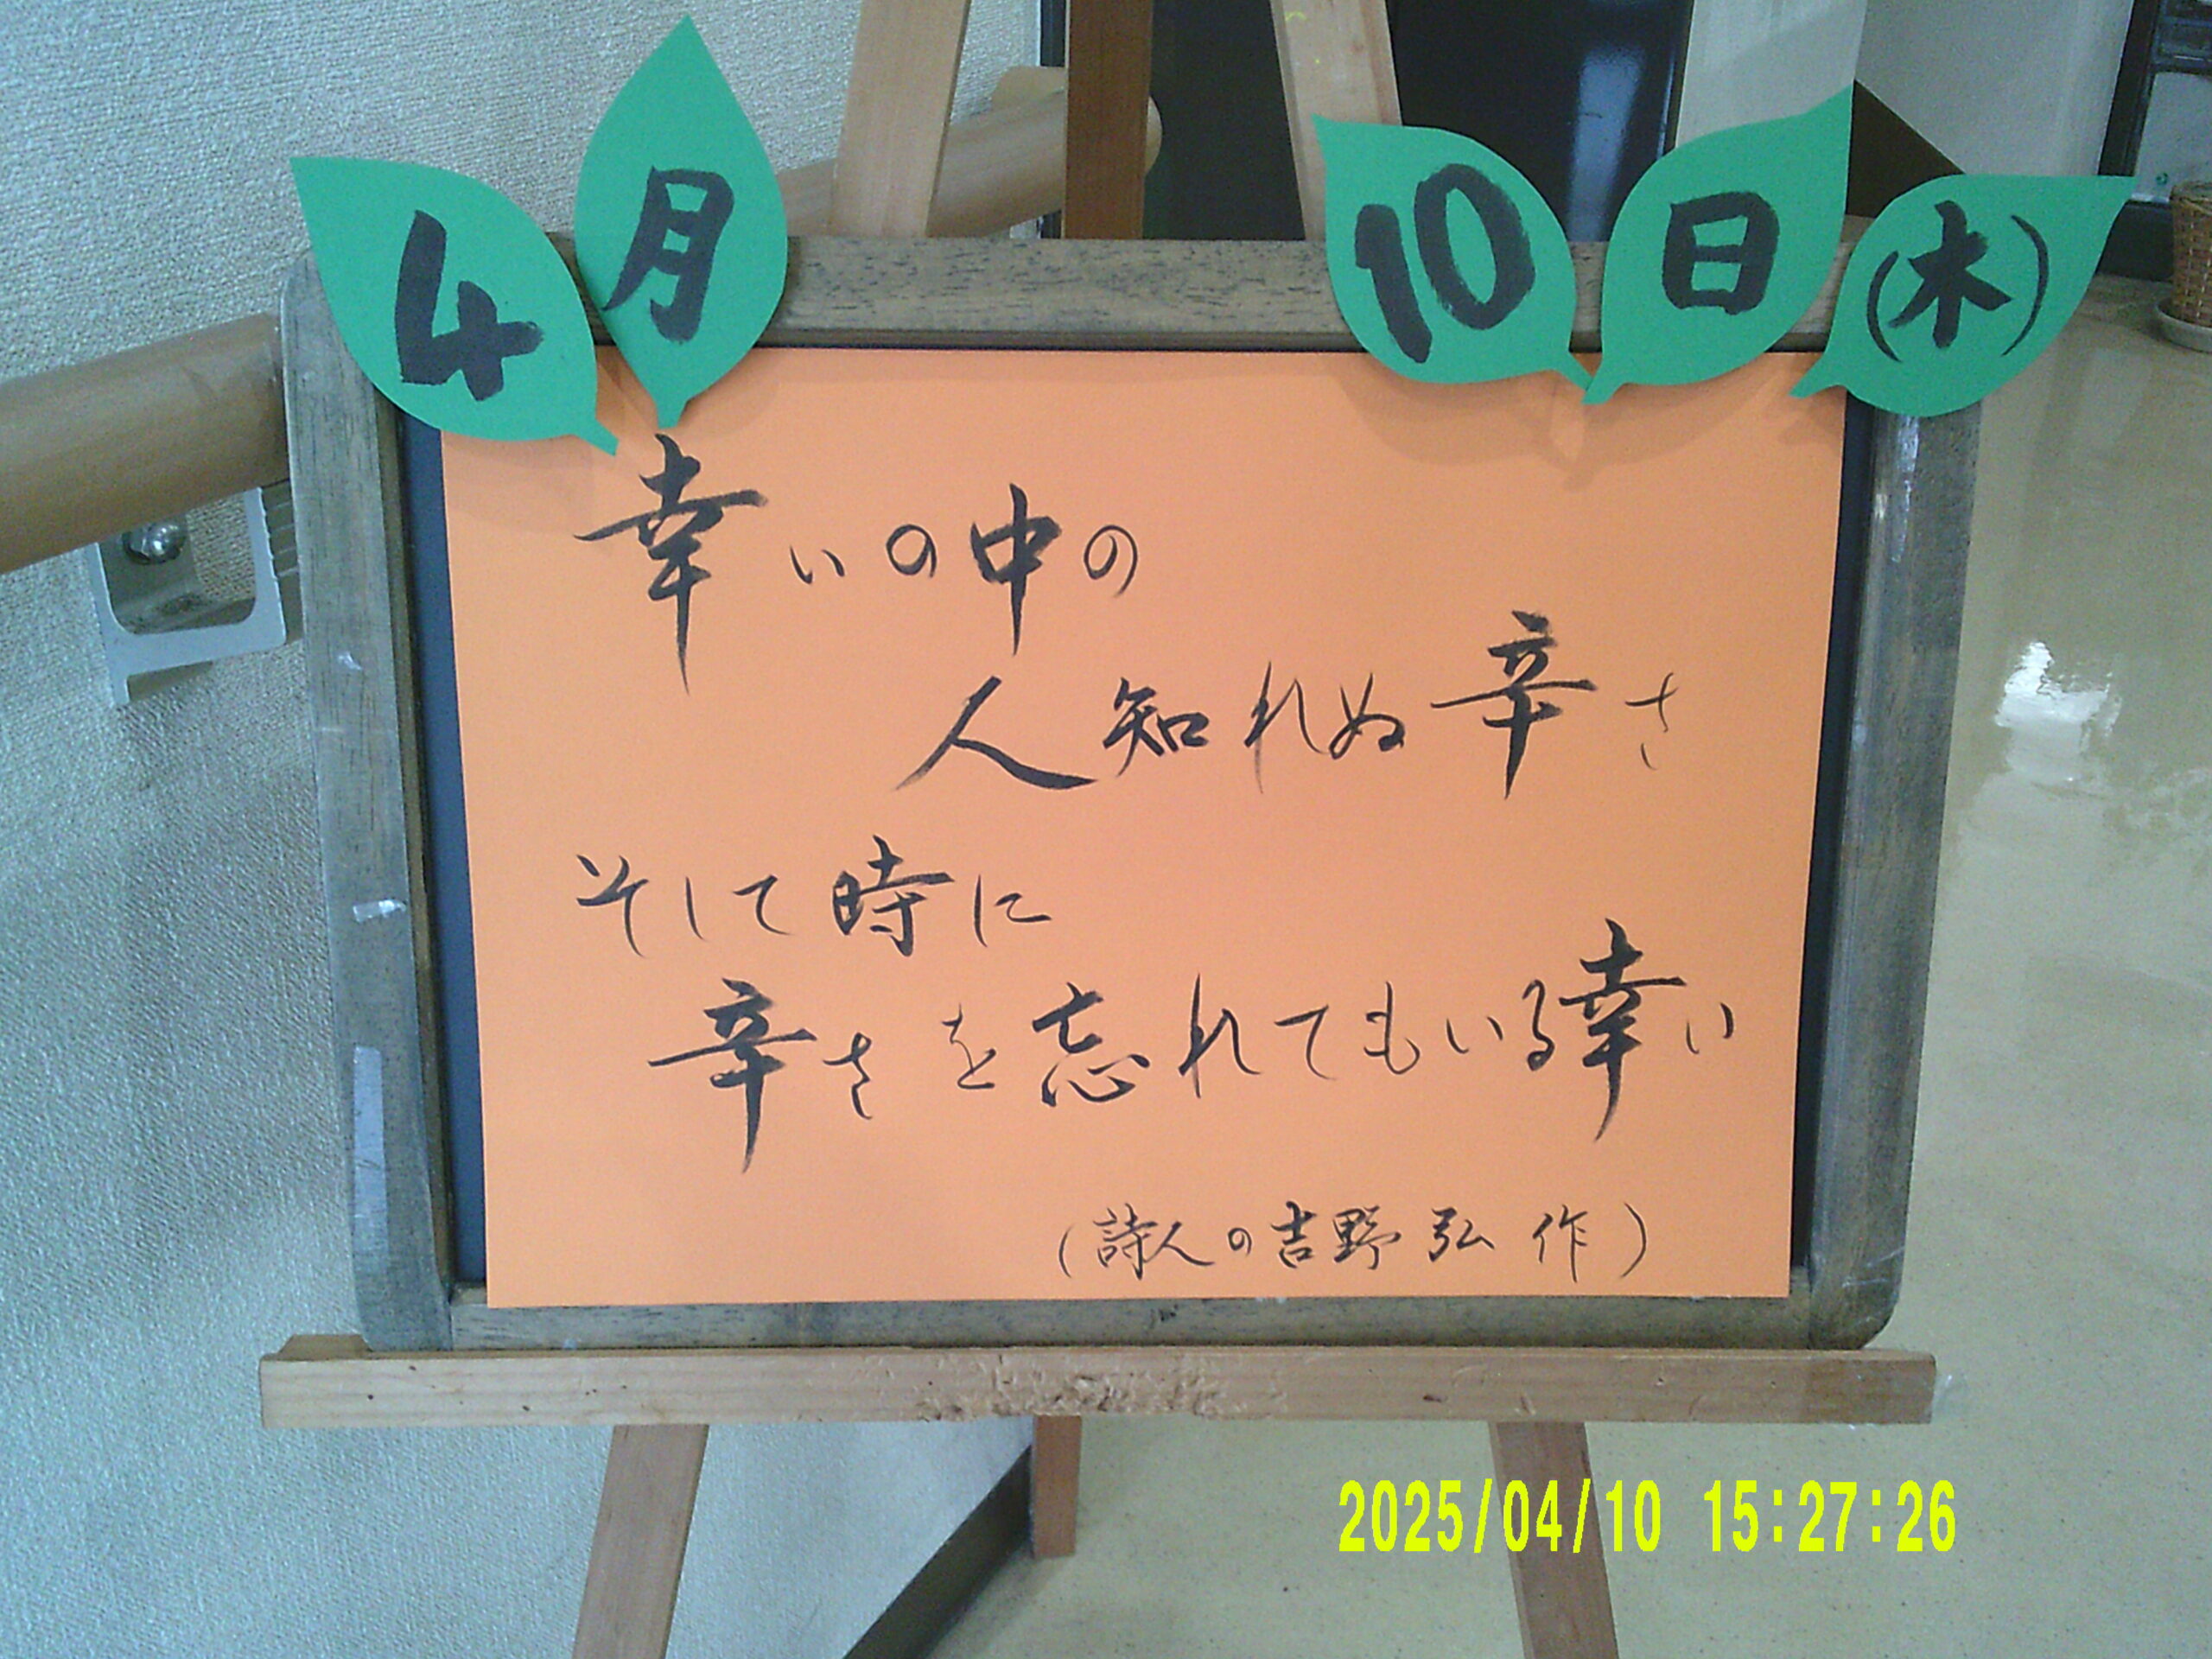 4月 10日(木)
幸いの中の
人知れぬ辛さ
そして時に
辛さを忘れてもいる幸い
(詩人の吉野弘作)
2025/04/10 15:27:26